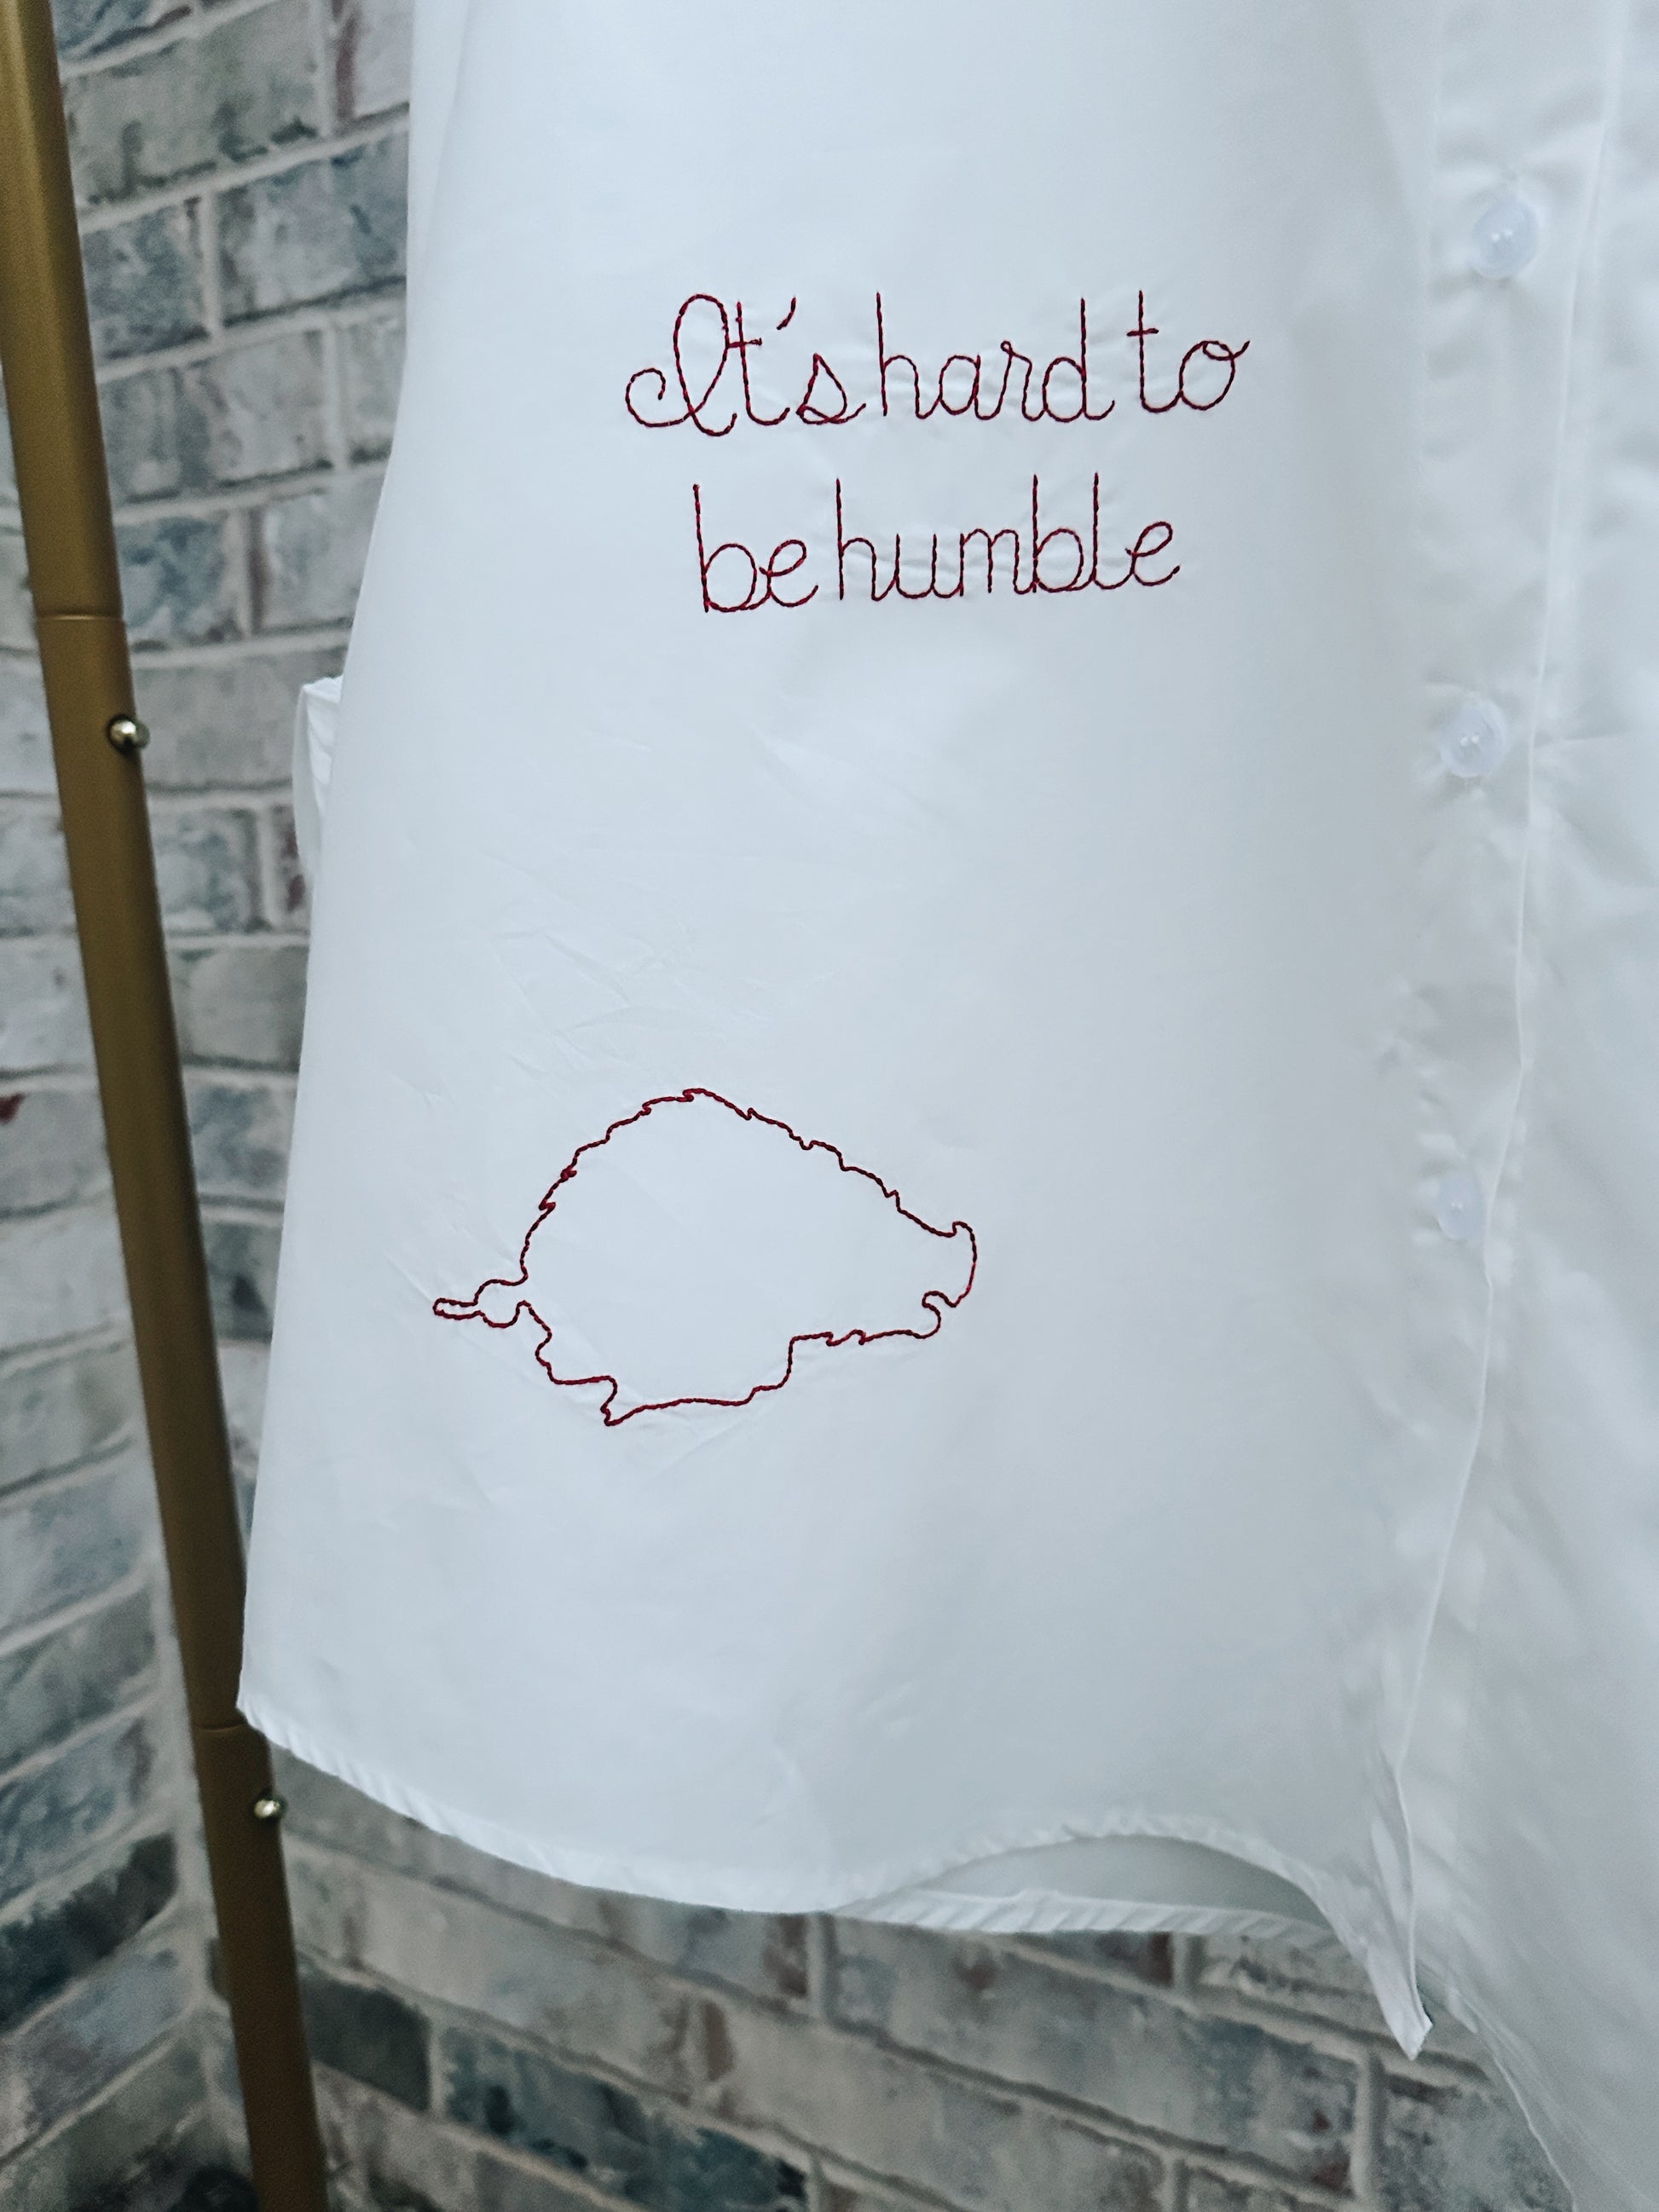 It's hard to
be humble